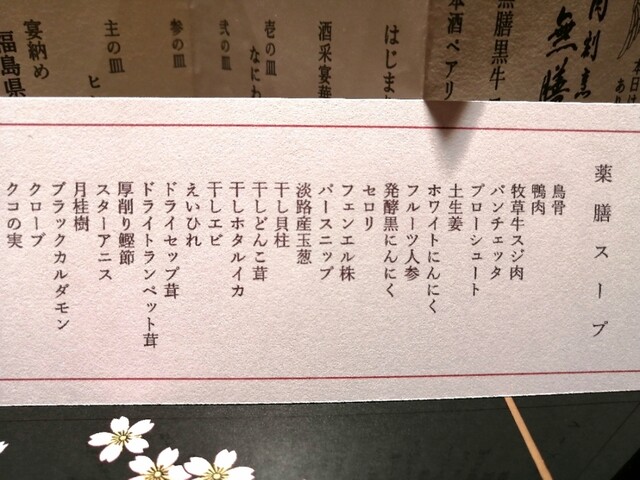 無膳
無膳黒牛
本酒ペアリ
はじま
酒采宴華
壱の皿
なにわ
弐の皿
参の皿
主の皿
ヒ
宴納め
福島県
薬膳スープ
鳥骨
鴨肉
牧草牛スジ肉
パンチェッタ
プローシュート
土生姜
ホワイトにんにく
フルーツ人参
発酵黒にんにく
セロリ
フェンエル株
パースニップ
淡路産玉葱
干し貝柱
干しどんこ茸
干しホタルイカ
干しエビ
えいひれ
ドライセップ茸
ドライトランペット茸
厚削り鰹節
スターアニス
月桂樹
ブラックカルダモン
クローブ
クコの実